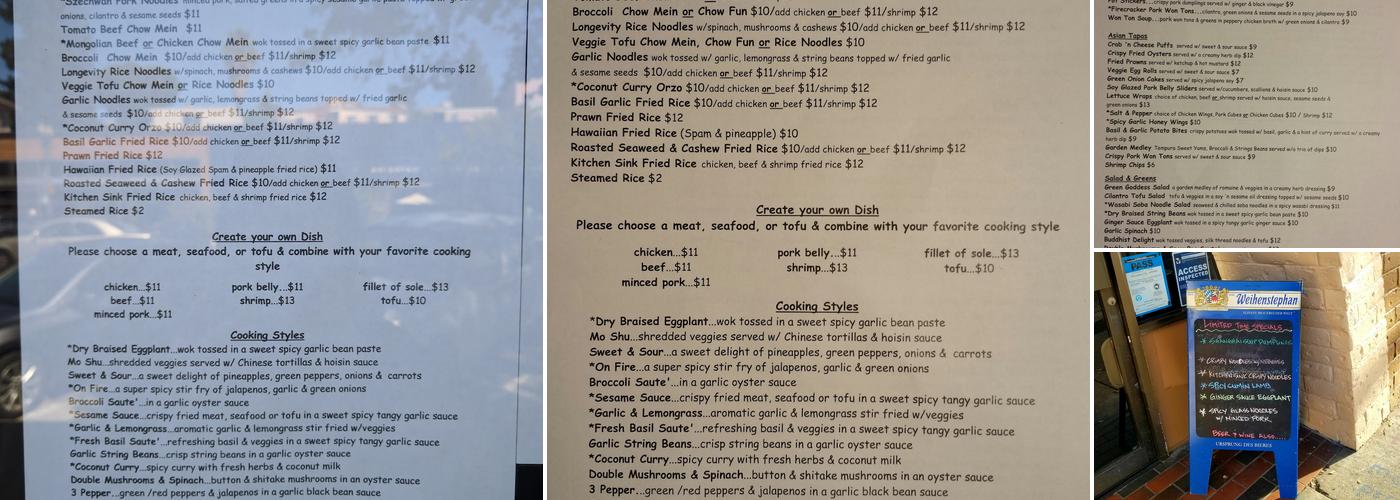 *Szechwan Pork Noodles minced pork,
onions, cilantro & sesame seeds $11
Tomato Beef Chow Mein $11
*Mongolian Beef or Chicken Chow Mein wok tossed in a sweet spicy garlic bean paste $11
Broccoli Chow Mein $10/add chicken or beef $11/shrimp $12
Longevity Rice Noodles w/spinach, mushrooms & cashews $10/add chicken or beef $11/shrimp $12
Veggie Tofu Chow Mein or Rice Noodles $10
Garlic Noodles wok tossed w/ garlic, lemongrass & string beans topped w/ fried garlic
& sesame seeds $10/add chicken or beef $11/shrimp $12
*Coconut Curry Orzo $10/add chicken or beef $11/shrimp $12
Basil Garlic Fried Rice $10/add chicken or beef $11/shrimp $12
Prawn Fried Rice $12
Hawaiian Fried Rice (Soy Glazed Spam & pineapple fried rice) $11
Roasted Seaweed & Cashew Fried Rice $10/add chicken or beef $11/shrimp $12
Kitchen Sink Fried Rice chicken, beef & shrimp fried rice $12
Steamed Rice $2
Create your own Dish
Please choose a meat, seafood, or tofu & combine with your favorite cooking
style
chicken...$11 pork belly...$11 fillet of sole...$13
beef...$11 shrimp...$13 tofu...$10
minced pork...$11
Cooking Styles
*Dry Braised Eggplant...wok tossed in a sweet spicy garlic bean paste
Mo Shu...shredded veggies served w/ Chinese tortillas & hoisin sauce
Sweet & Sour...a sweet delight of pineapples, green peppers, onions & carrots
*On Fire...a super spicy stir fry of jalapenos, garlic & green onions
Broccoli Saute'...in a garlic oyster sauce
*Sesame Sauce...crispy fried meat, seafood or tofu in a sweet spicy tangy garlic sauce
*Garlic & Lemongrass...aromatic garlic & lemongrass stir fried w/veggies
*Fresh Basil Saute'...refreshing basil & veggies in a sweet spicy tangy garlic sauce
Garlic String Beans...crisp string beans in a garlic oyster sauce
*Coconut Curry...spicy curry with fresh herbs & coconut milk
Double Mushrooms & Spinach...button & shitake mushrooms in an oyster sauce
3 Pepper...green /red peppers & jalapenos in a garlic black bean sauce
Broccoli Chow Mein or Chow Fun $10/add chicken or beef $11/shrimp $12
Longevity Rice Noodles w/spinach, mushrooms & cashews $10/add chicken or beef $11/shrimp $12
Veggie Tofu Chow Mein, Chow Fun or Rice Noodles $10
Garlic Noodles wok tossed w/ garlic, lemongrass & string beans topped w/ fried garlic
& sesame seeds $10/add chicken or beef $11/shrimp $12
*Coconut Curry Orzo $10/add chicken or beef $11/shrimp $12
Basil Garlic Fried Rice $10/add chicken or beef $11/shrimp $12
Prawn Fried Rice $12
Hawaiian Fried Rice (Spam & pineapple) $10
Roasted Seaweed & Cashew Fried Rice $10/add chicken or beef $11/shrimp $12
Kitchen Sink Fried Rice chicken, beef & shrimp fried rice $12
Steamed Rice $2
Create your own Dish
Please choose a meat, seafood, or tofu & combine with your favorite cooking style
chicken...$11 pork belly...$11 fillet of sole...$13
beef...$11 shrimp...$13 tofu...$10
minced pork...$11
Cooking Styles
*Dry Braised Eggplant...wok tossed in a sweet spicy garlic bean paste
Mo Shu...shredded veggies served w/ Chinese tortillas & hoisin sauce
Sweet & Sour...a sweet delight of pineapples, green peppers, onions & carrots
*On Fire...a super spicy stir fry of jalapenos, garlic & green onions
Broccoli Saute'...in a garlic oyster sauce
*Sesame Sauce...crispy fried meat, seafood or tofu in a sweet spicy tangy garlic sauce
*Garlic & Lemongrass...aromatic garlic & lemongrass stir fried w/veggies
*Fresh Basil Saute'...refreshing basil & veggies in a sweet spicy tangy garlic sauce
Garlic String Beans...crisp string beans in a garlic oyster sauce
*Coconut Curry...spicy curry with fresh herbs & coconut milk
Double Mushrooms & Spinach...button & shitake mushrooms in an oyster sauce
3 Pepper...green /red peppers & jalapenos in a garlic black bean sauce
Pot Stickers...crisp pork dumplings served w/ ginger & black vinegar $9
*Firecracker Pork Won Tons...cilantro, green onions & sesame seeds in a spicy jalapeno soy $10
Won Ton Soup...pork won tons & greens in peppery chicken broth w/ green onions & cilantro $9
Asian Tapas
Crab 'n Cheese Puffs served w/ sweet & sour sauce $9
Crispy Fried Oysters served w/ a creamy herb dip $12
Fried Prawns served w/ ketchup & hot mustard $12
Veggie Egg Rolls served w/ sweet & sour sauce $7
Green Onion Cakes served w/ spicy jalapeno soy $7
Soy Glazed Pork Belly Sliders served w/cucumbers, scallions & hoisin sauce $10
Lettuce Wraps choice of chicken, beef or shrimp served w/ hoisin sauce, sesame seeds &
green onions $13
*Salt & Pepper choice of Chicken Wings, Pork Cubes or Chicken Cubes $10 / Shrimp $12
*Spicy Garlic Honey Wings $10
Basil & Garlic Potato Bites crispy potatoes wok tossed w/ basil, garlic & a hint of curry served w/ a creamy
herb dip $9
Garden Medley Tempura Sweet Yams, Broccoli & Strings Beans served w/a trio of dips $10
Crispy Pork Won Tons served w/ sweet & sour sauce $9
Shrimp Chips $6
Salad & Greens
Green Goddess Salad a garden medley of romaine & veggies in a creamy herb dressing $9
Cilantro Tofu Salad tofu & veggies in a soy 'n sesame oil dressing topped w/ sesame seeds $10
*Wasabi Soba Noodle Salad seaweed & chilled soba noodles in a spicy wasabi dressing $11
*Dry Braised String Beans wok tossed in a sweet spicy garlic bean paste $10
Spicy Eggplant wok tossed in a sweet spicy tangy garlic ginger sauce $11
Garlic Spinach $10
Buddhist Delight wok tossed veggies, silk thread noodles & tofu $12
PASS
ACCESS
INSPECTED
Weihenstephan
LIMITED TIME SPECIALS
* SHANGHAI SOUP DUMPLINGS
* CRISPY NOODLES W/VEGGIES
* KITCHEN SINK CRISPY NOODLES
* SPICY CUMIN LAMB
* GINGER SAUCE EGGPLANT
* SPICY GLASS NOODLES
W/ MINCED PORK
BEER & WINE ALSO.....
URSPRUNG DES BIERES